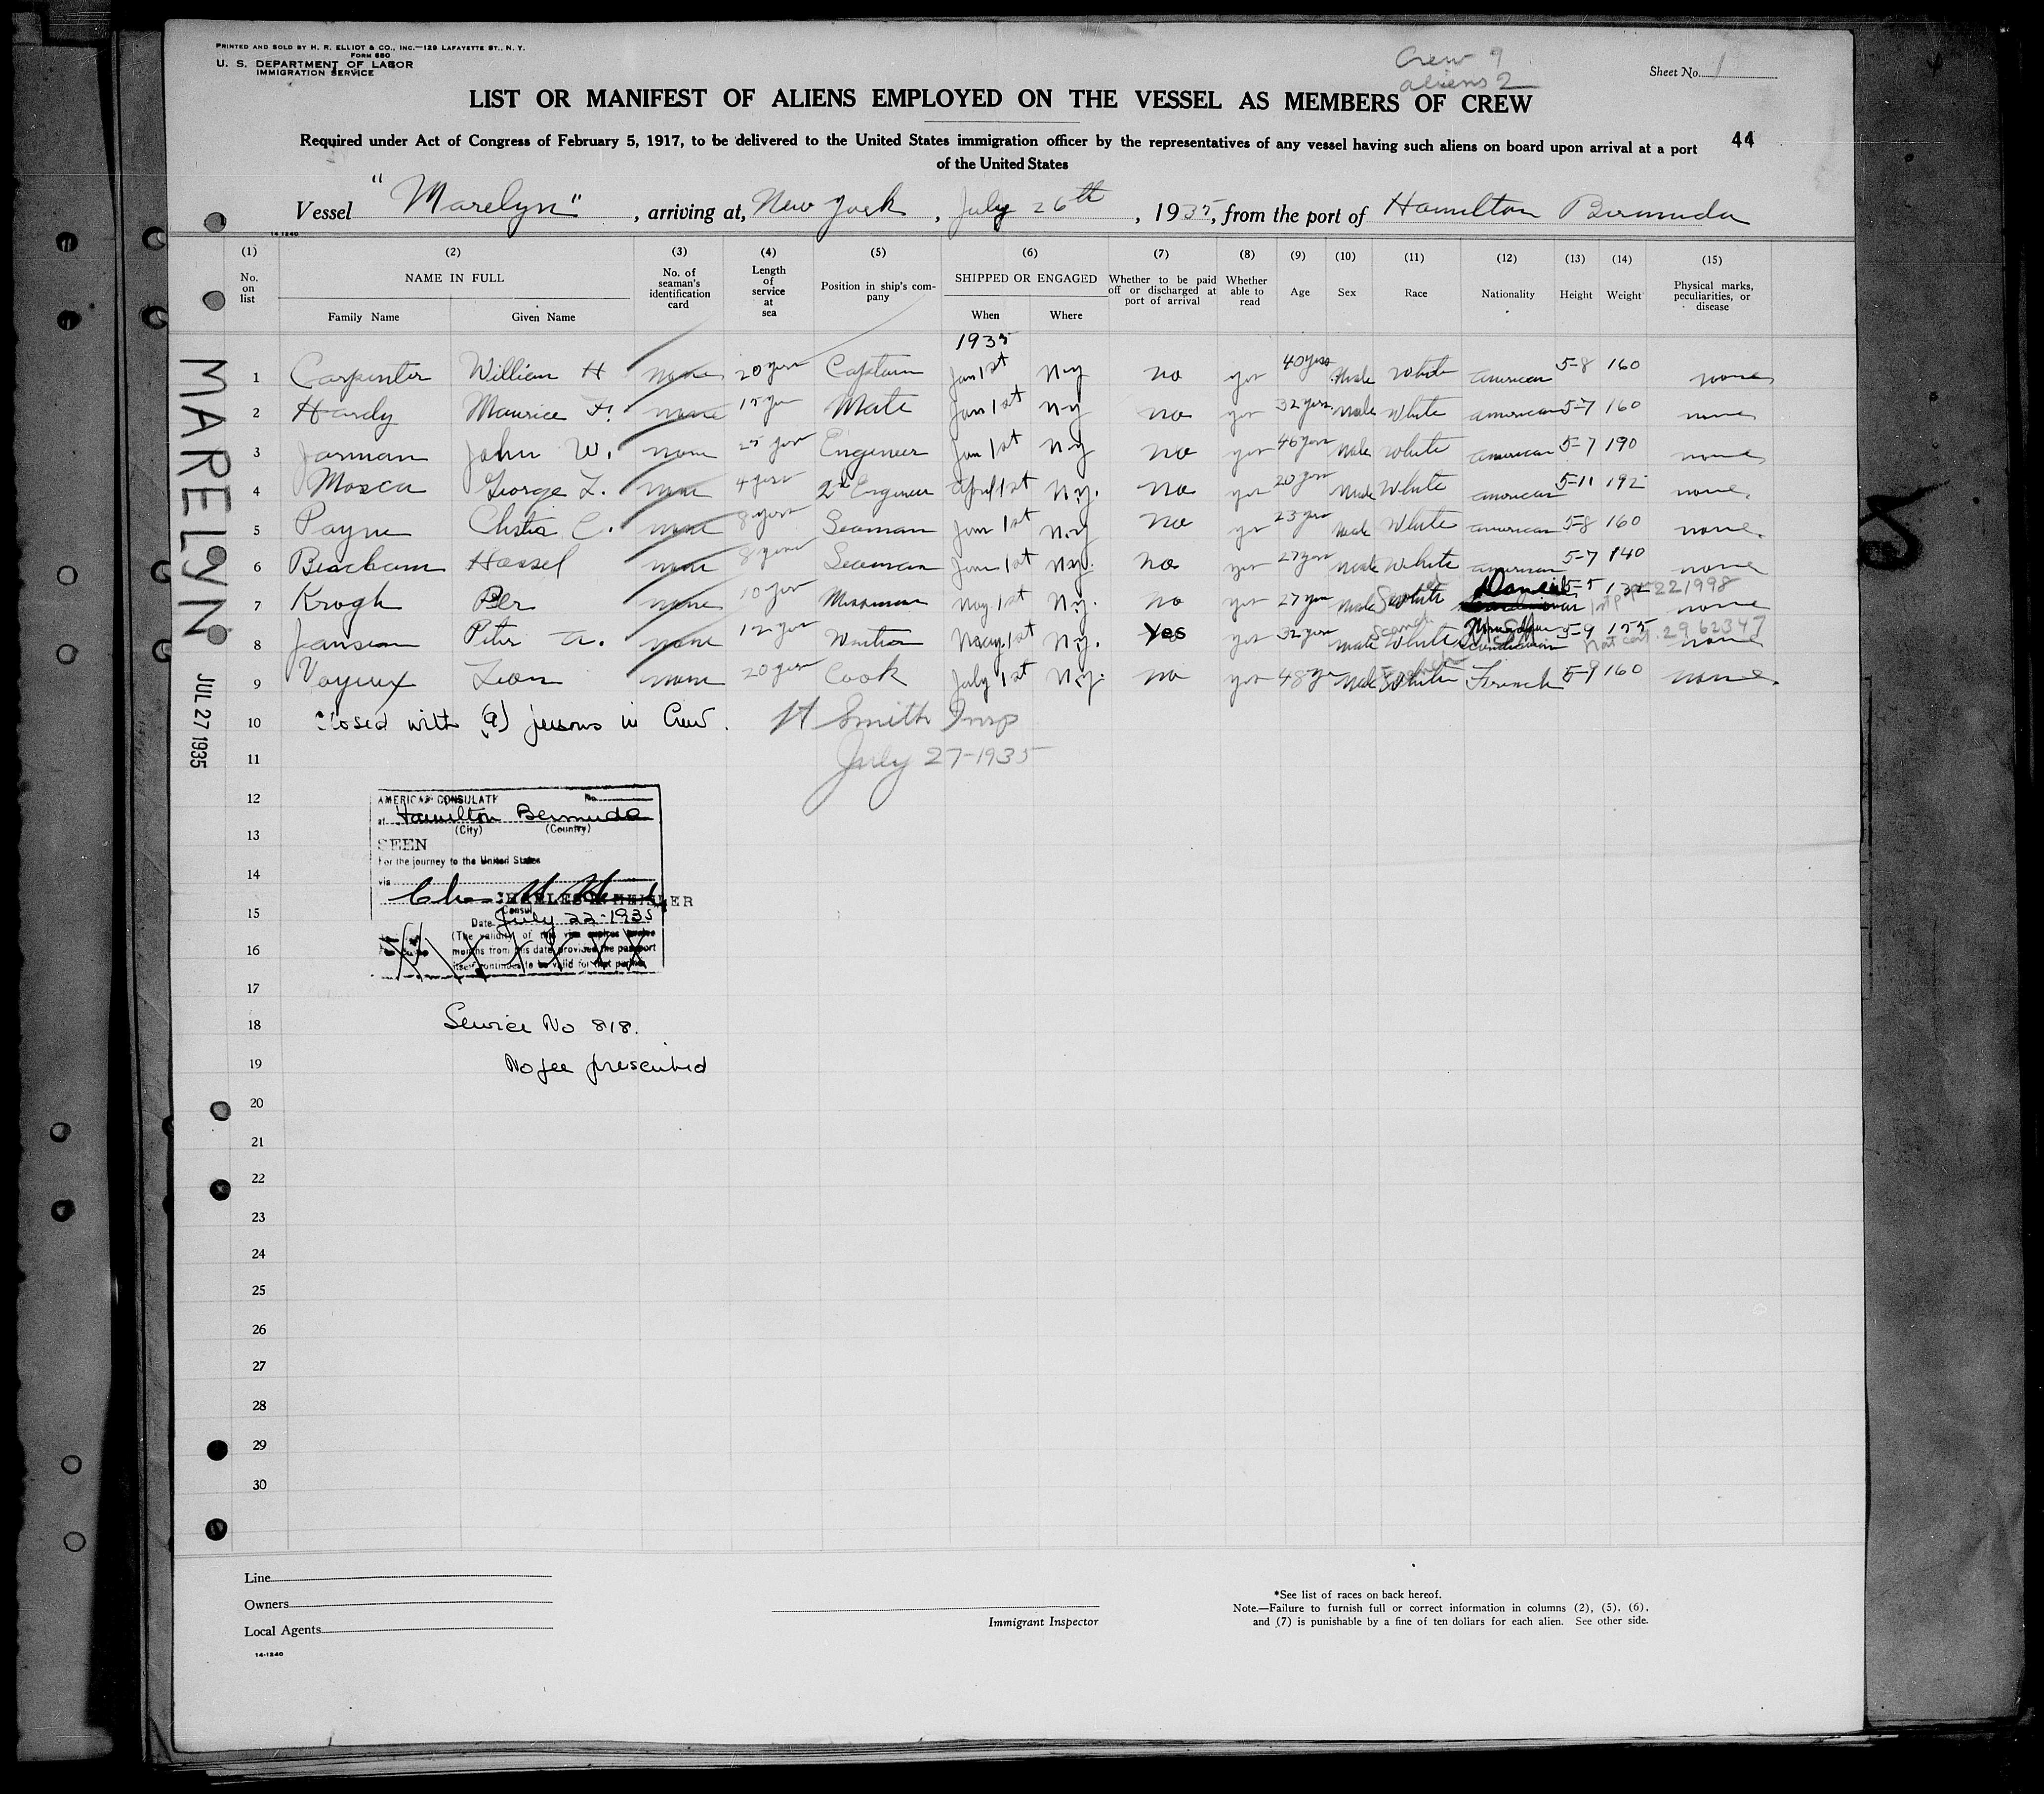 PRINTED AND SOLD BY H. R. ELLIOT & CO., INC.—129 LAFAYETTE ST., N. Y.
FORM 680
U. S. DEPARTMENT OF LABOR
IMMIGRATION SERVICE
Crew 9
aliens 2
Sheet No. 1
LIST OR MANIFEST OF ALIENS EMPLOYED ON THE VESSEL AS MEMBERS OF CREW
Required under Act of Congress of February 5, 1917, to be delivered to the United States immigration officer by the representatives of any vessel having such aliens on board upon arrival at a port
of the United States
44
Vessel "Marelyn", arriving at, New York, July 26th, 1935, from the port of Hamilton Bermuda
14-1240
(1) (2) (3) (4) (5) (6) (7) (8) (9) (10) (11) (12) (13) (14) (15)
No. on list NAME IN FULL Family Name Given Name No. of seaman's identification card Length of service at sea Position in ship's company SHIPPED OR ENGAGED When Where Whether to be paid off or discharged at port of arrival Whether able to read Age Sex Race Nationality Height Weight Physical marks, peculiarities, or disease
1935
1 Carpenter William H none 20 years Captain Jan 1st N-y no yes 40 years Male White American 5-8 160 none
2 Hardy Maurice F. none 15 years Mate Jan 1st N-y no yes 32 years Male White American 5-7 160 none
3 Jarman John W. none 25 years Engineer Jan 1st N-y No yes 46 years Male White American 5-7 190 none
4 Mosca George L. none 4 years 2nd Engineer April 1st N.y. No yes 20 years Male White American 5-11 192 none.
5 Payne C. none 8 years Seaman Jan 1st N.y No yes 23 years Male White American 5-8 160 none.
6 Beacham Hassel none 8 years Seaman Jan 1st N.y. No yes 27 years Male White American 5-7 140 none
7 Krogh Per none 10 years Messman May 1st N.y. No yes 27 years Male White Danish 5-5 1st pap 221998 none
8 Jansen Peter A. none 12 years May 1st N.y. Yes yes 32 years Male Scand White 5-9 155 Nat cert. 2962347 none
9 Voyeux Leon none 20 years Cook July 1st N.y. no yes 48 yrs Male White French 5-9 160 none.
10 Closed with (9) persons in Crew. H Smith Insp
11 July 27-1935
12
13
14
15
16
17
18 Service No 818.
19 No fee prescribed
20
21
22
23
24
25
26
27
28
29
30
AMERICAN CONSULATE No.
at Hamilton Bermuda
(City) (Country)
SEEN
For the journey to the United States
via
Consul
Date July 22-1935
(The validity of this visa expires twelve
months from this date provided the passport
itself continues to be valid for that period
MARELYN
JUL 27 1935
Line
Owners
Local Agents
14-1240
Immigrant Inspector
*See list of races on back hereof.
Note.—Failure to furnish full or correct information in columns (2), (5), (6),
and (7) is punishable by a fine of ten dollars for each alien. See other side.